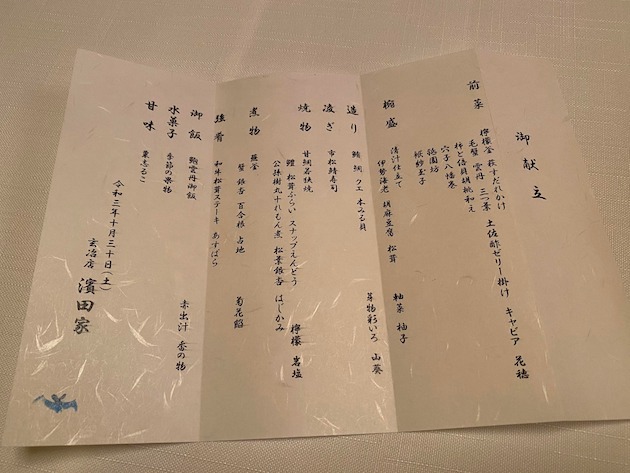 御献立
前菜
檸檬釜 萩すだれかけ
毛蟹 雲丹 三つ葉 土佐酢ゼリー掛け キャビア 花穂
柿と倍貝胡桃和え
穴子八幡巻
銀杏
椀盛
清汁仕立て
伊勢海老 胡麻豆腐 松茸 軸菜 柚子
造り
鮪 鯛 クエ 本みる貝 芽物彩いろ 山葵
凌ぎ
市松鯖寿司
焼物
甘鯛若狭焼
鱧 松茸ふらい スナップえんどう 檸檬 岩塩
公孫樹丸十れもん煮 松葉銀杏 はじかみ
煮物
蕪釜
蟹 銀杏 百合根 占地 菊花餡
強肴
和牛松茸ステーキ あすぱら
御飯
鯛雲丹御飯 赤出汁 香の物
水菓子
季節の果物
甘味
栗志るこ
令和三年十月三十日(土)
玄冶店 濱田家